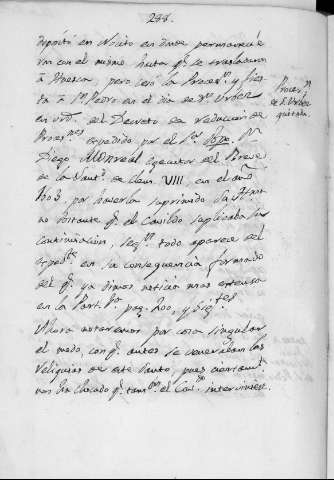 288.
depositó en Nicito en donde permanecie
ron con el mismo hasta qe. se trasladaron
à Huesca: pero cesó la Procesn. y fies
ta à Sn. Pedro en el dia de Sn. Urbez
en vrd. del Decreto de reducion de
Procesnes. expedido por el Sr. Dn.
Diego Monreal Egecutor del Breve
de la Santd. de Clem. VIII, en el año
1603, por haverla suprimido Su Ilma.
no obstante qe. el Cavildo suplicaba su
continuacion, segn. todo aparece del
Expedte. en su consequencia formado
del qe. ya dimos noticia mas extensa
en la Part. pag. 200, y sigtes.
Ahora notaremos por cosa singular
el modo, con qe. antes se veneraban las
Reliquias de este Santo, pues ciertamte.
nos ha chocado qe. tambn. el Cavdo. interviniese.
Procesn.
de S. Urbez
quitada.